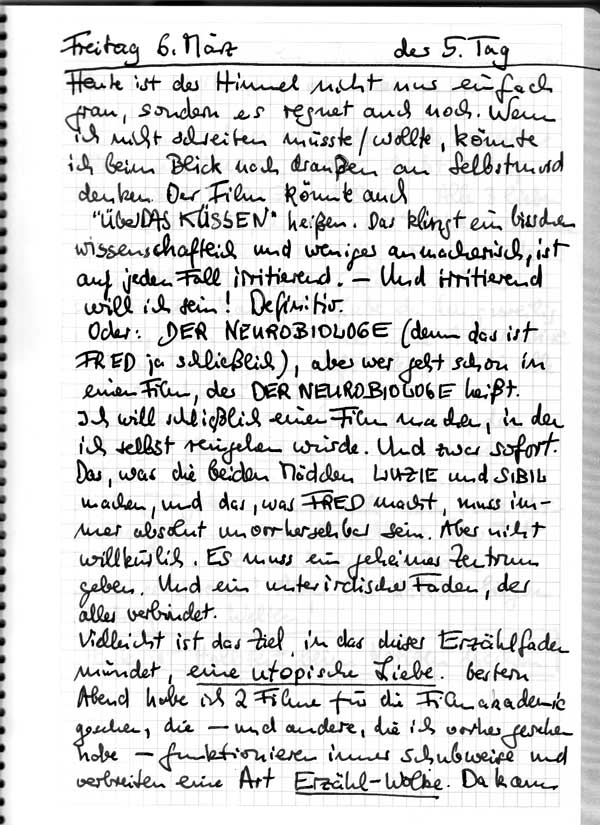 Freitag 6. März der 5. Tag
Heute ist der Himmel nicht nur einfach
grau, sondern es regnet auch noch. Wenn
ich nicht schreiben müsste/wollte, könnte
ich beim Blick nach draußen an Selbstmord
denken. Der Film könnte auch
"ÜberDAS KÜSSEN" heißen. Das klingt ein bisschen
wissenschaftlich und weniger anmacherisch, ist
auf jeden Fall irritierend. – Und irritierend
will ich sein! Definitiv.
Oder: DER NEUROBIOLOGE (denn das ist
FRED ja schließlich), aber wer geht schon in
einen Film, der DER NEUROBIOLOGE heißt.
Ich will schließlich einen Film machen, in den
ich selbst reingehen würde. Und zwar sofort.
Das, was die beiden Mädchen LUZIE und SIBIL
machen, und das, was FRED macht, muss im-
mer absolut unvorhersehbar sein. Aber nicht
willkürlich. Es muss ein geheimes Zentrum
geben. Und ein unterirdischer Faden, der
alles verbindet.
Vielleicht ist das Ziel, in das dieser Erzählfaden
mündet, eine utopische Liebe. Gestern
Abend habe ich 2 Filme für die Filmakademie
gesehen, die – und andere, die ich vorher gesehen
habe – funktionieren immer schubweise und
verbreiten eine Art Erzähl-Wolke. Da kann